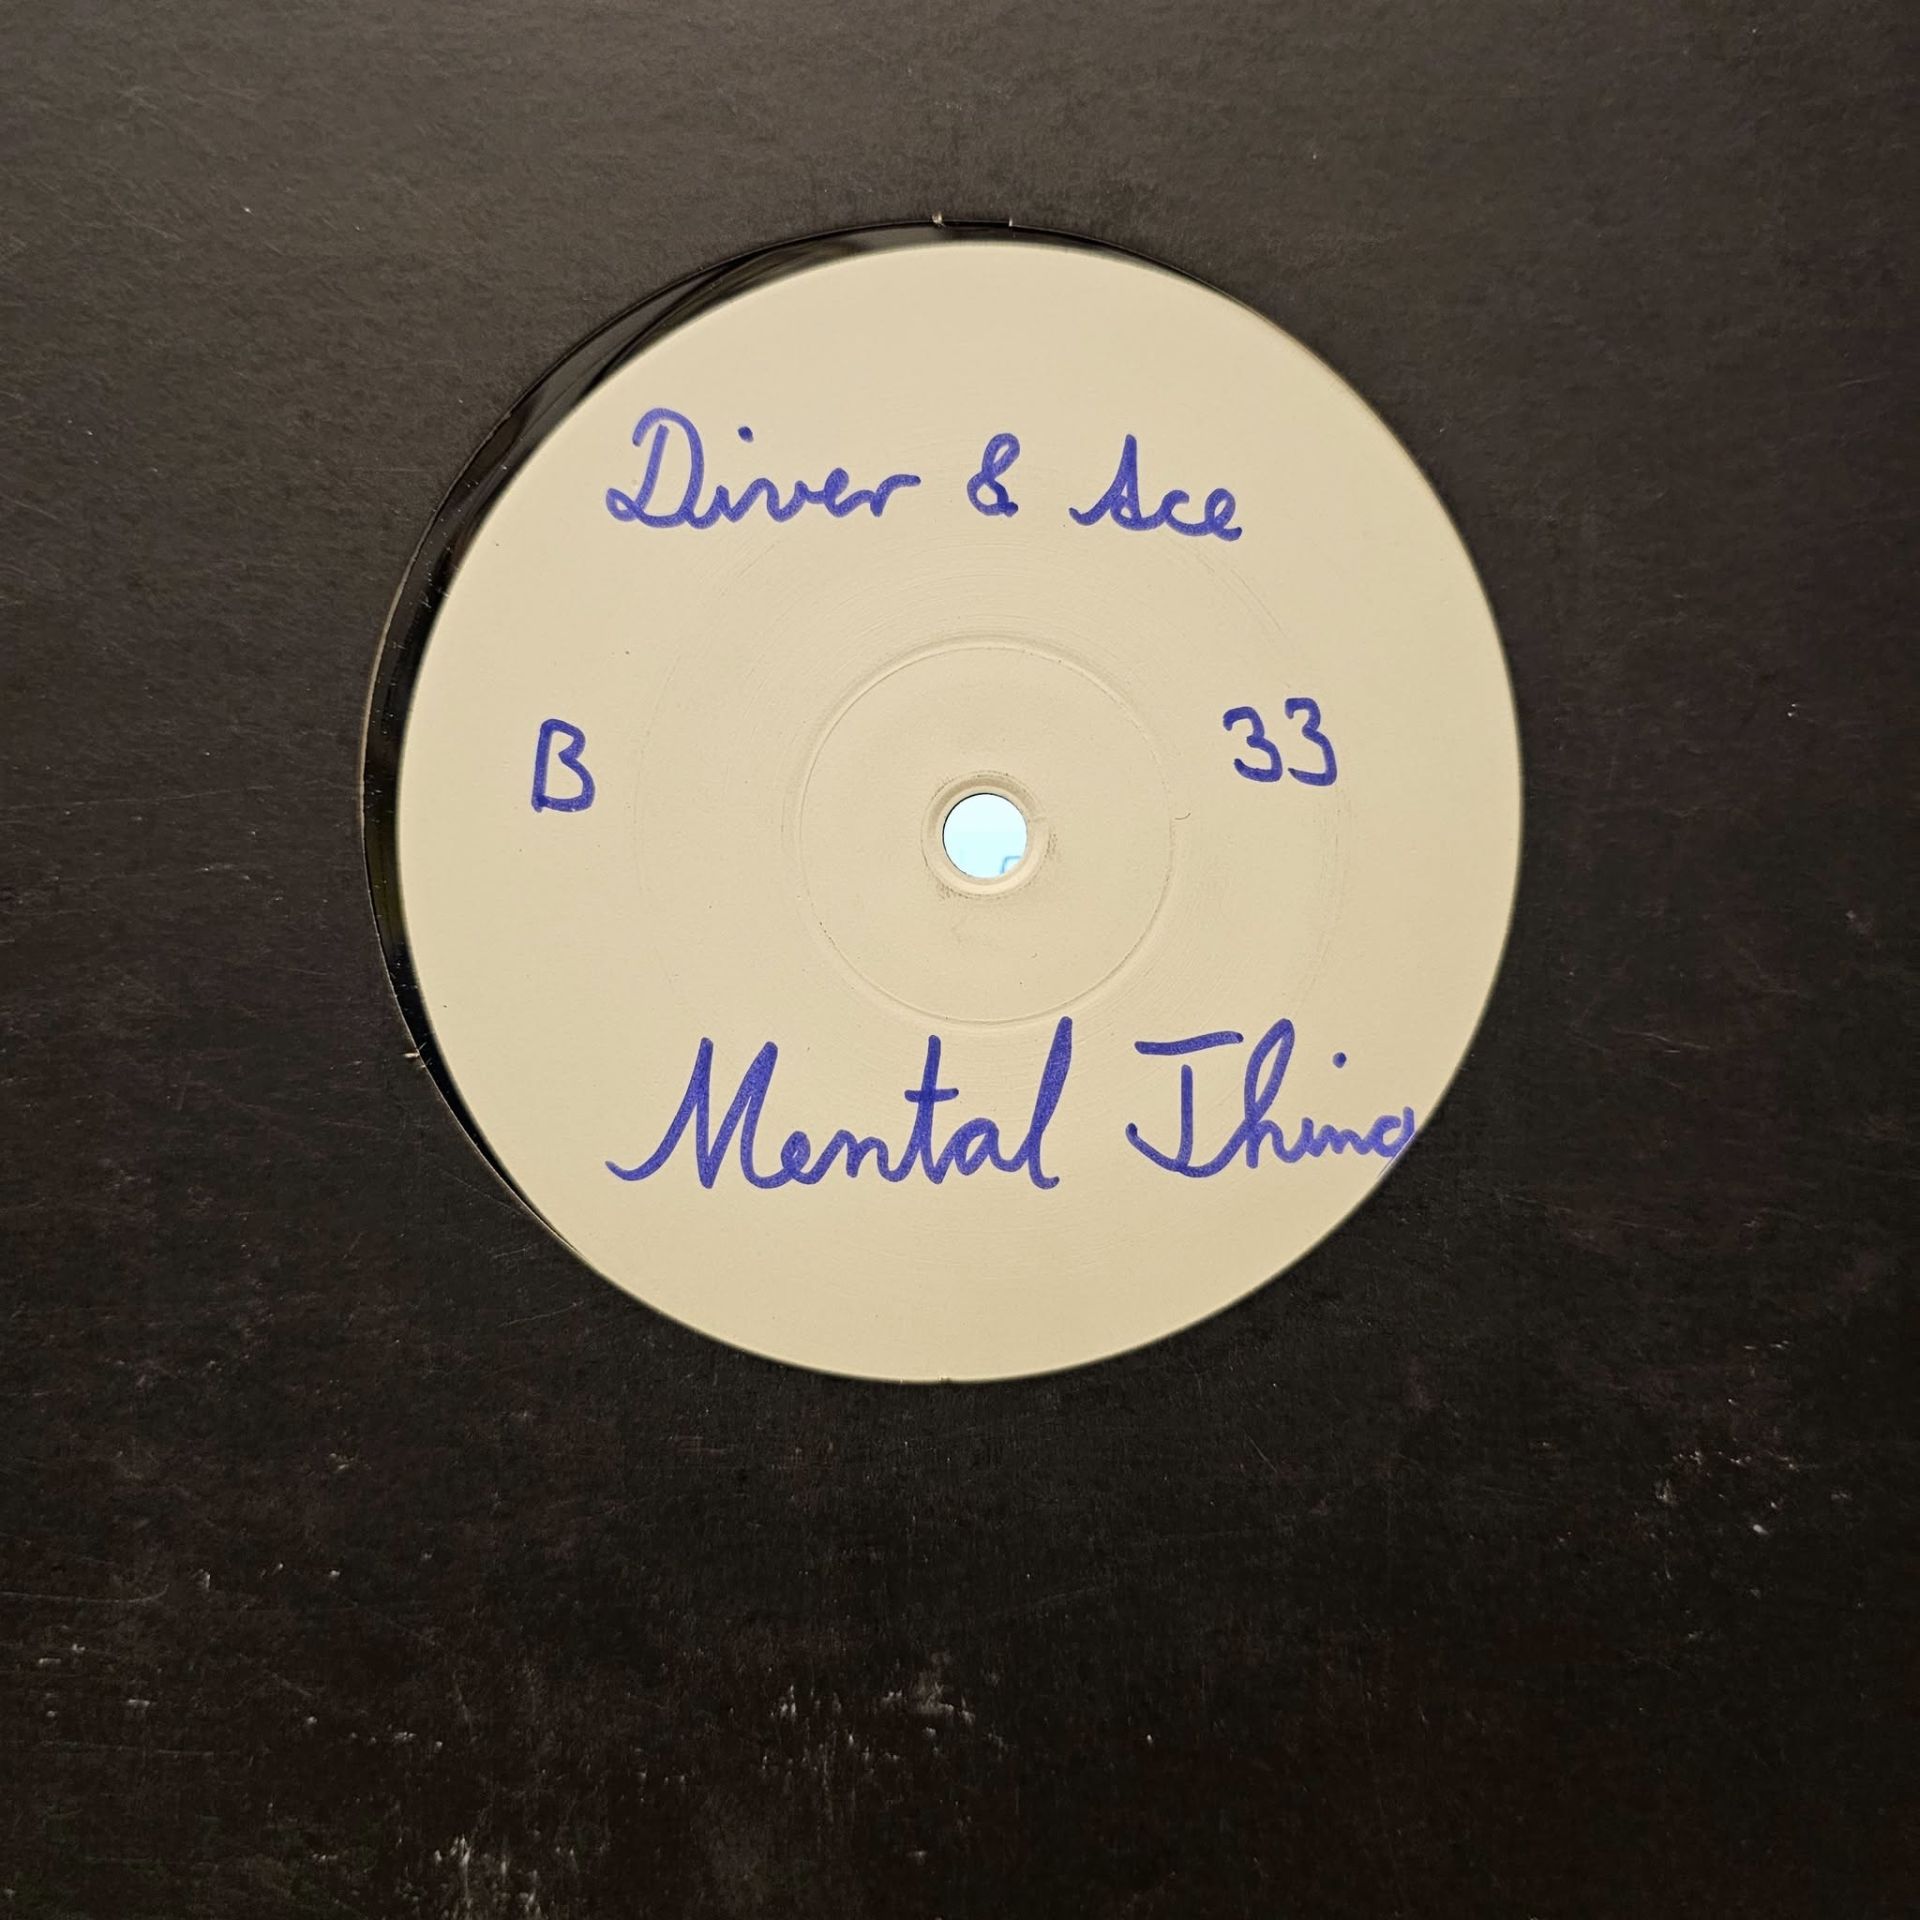 Diver & Ace
B 33
Mental Thing